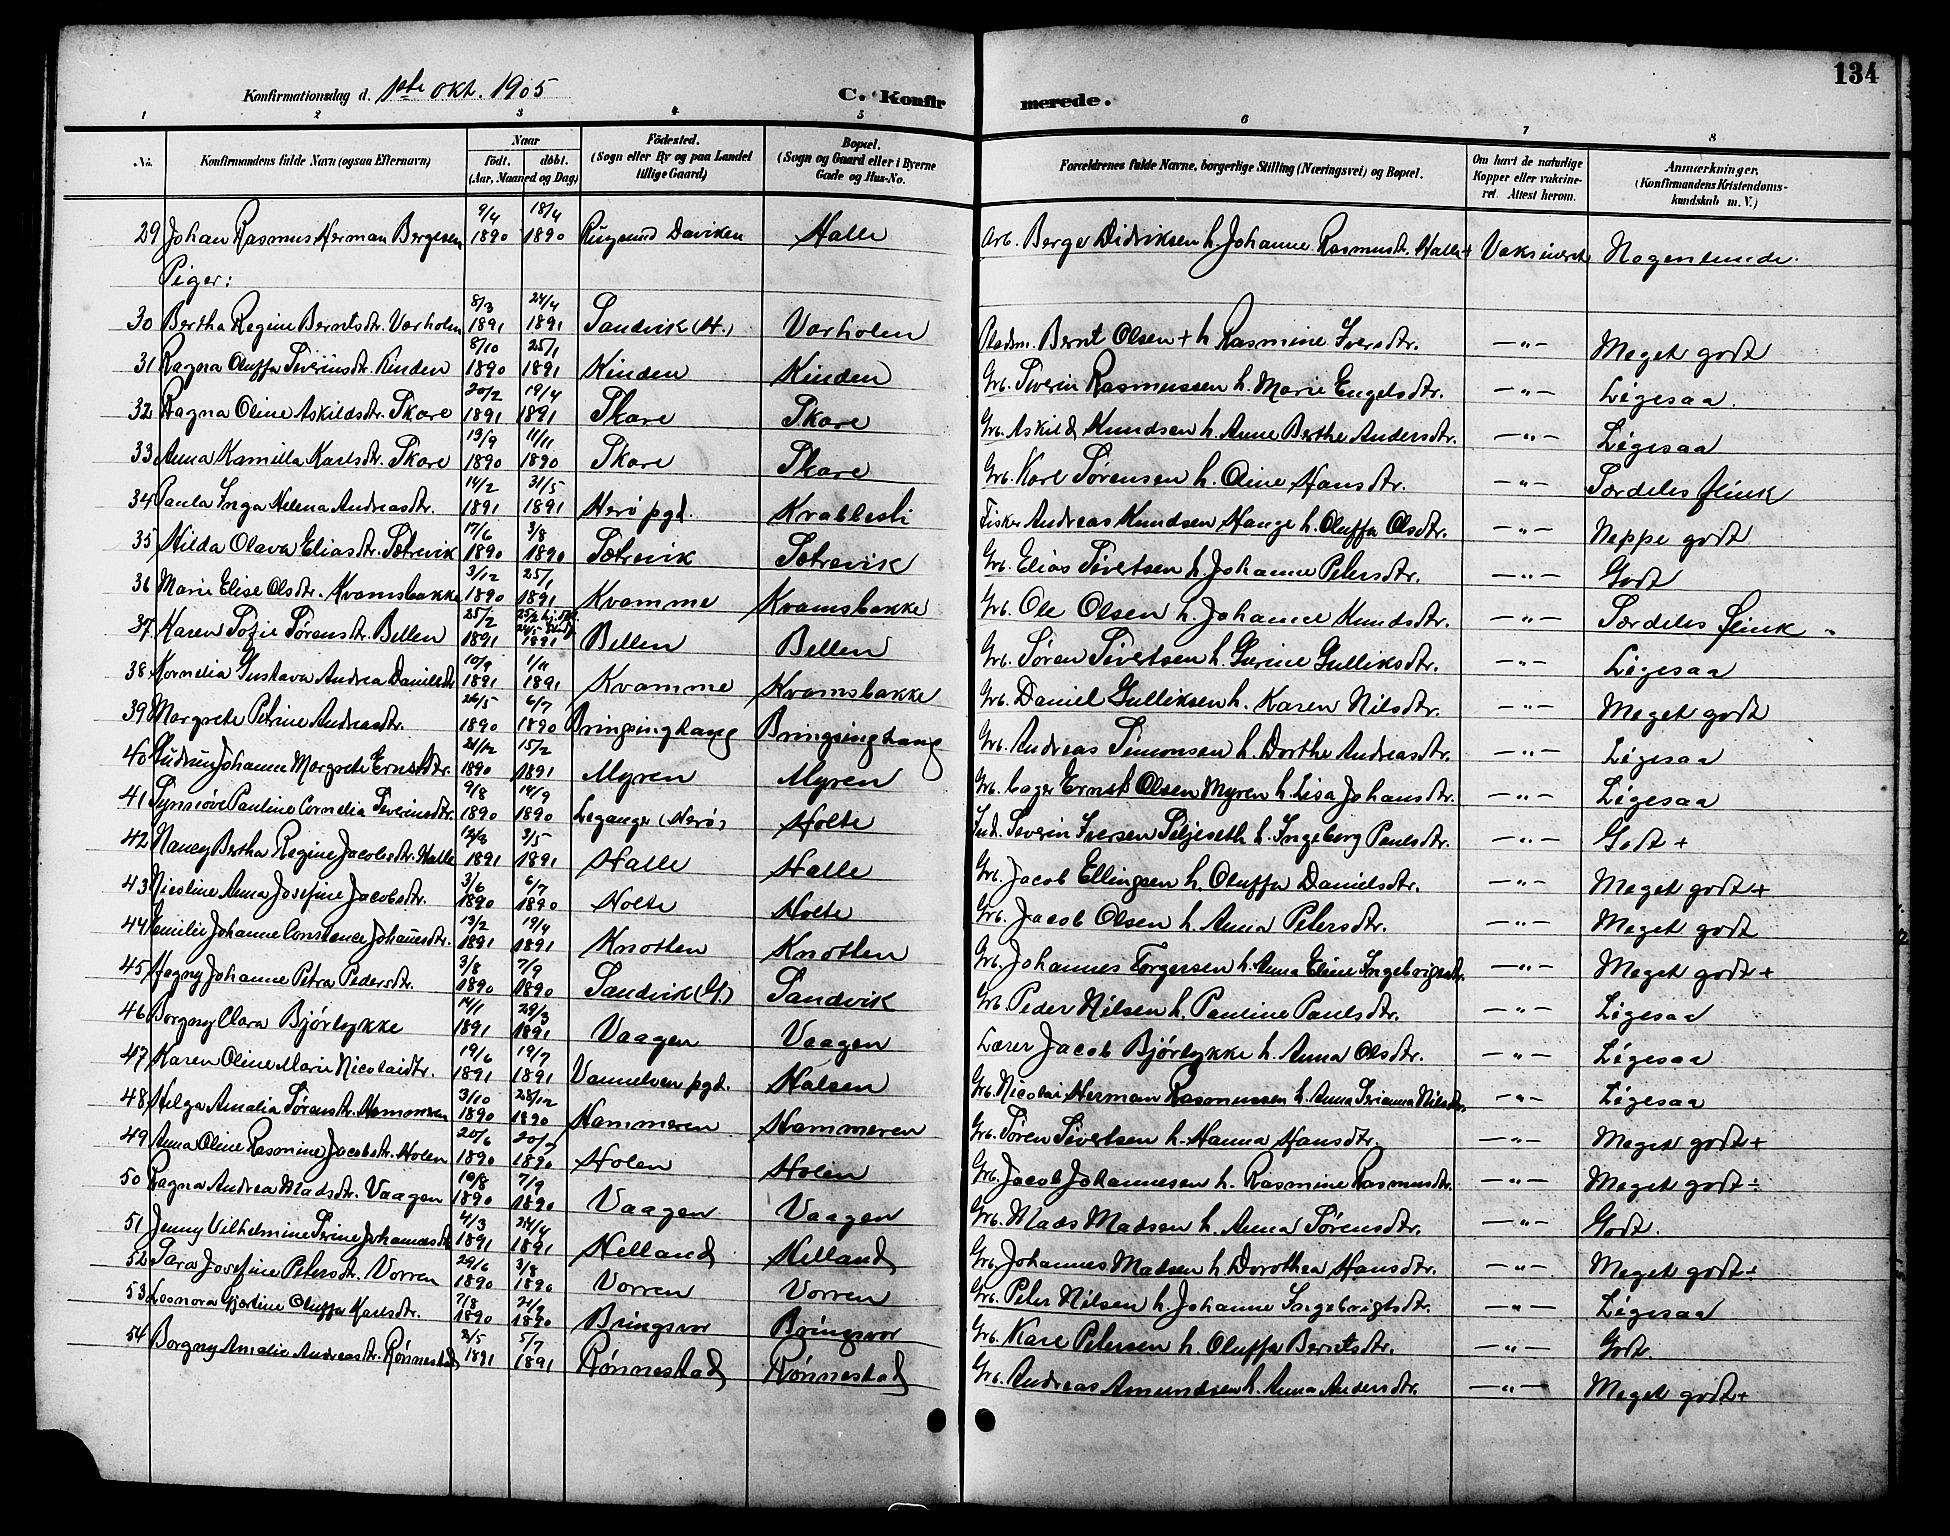 134
Konfirmationsdag d. 1ste okt. 1905
C. Konfirmerede.
1 2 3 4 5 6 7 8
No. Konfirmandens fulde Navn (ogsaa Efternavn) Naar født. døbt. (Aar, Maaned og Dag) Fødested. (Sogn eller By og paa Landet tillige Gaard) Bopæl. (Sogn og Gaard eller i Byerne Gade og Hus-No. Forældrenes fulde Navne, borgerlige Stilling (Næringsvei) og Bopæl. Om havt de naturlige Kopper eller vakcineret. Attest herom. Anmærkninger. (Konfirmandens Kristendomskundskab m. V.)
29 Johan Rasmus Herman Bergesen 9/4 1890 18/4 1890 Rugsund Daviken Halle Arb. Berge Didriksen h. Johanne Rasmusdtr. Halle + Vaksineret Nogenlunde.
Piger:
30 Bertha Regine Berntsdtr. Vorholm 8/3 1891 24/4 1891 Sandvik (H.) Vorholen Pladsm. Bernt Olsen + h Rasmine Iversdtr. —„— Meget godt
31 Ragna Oluffa Severinsdtr. Kinden 8/10 1890 25/1 1891 Kinden Kinden Grb. Severin Rasmussen h. Marie Engelsdtr. —„— Ligesaa.
32 Ragna Oline Askildsdtr. Skare 20/2 1891 19/4 1891 Skare Skare Grb. Askild Knudsen h. Anne Berthe Andersdtr. —„— Ligesaa
33 Anna Kamilla Karlsdtr. Skare 13/9 1890 11/11 1890 Skare Skare Grb. Karl Sørensen h. Oline Hansdtr. —„— Særdeles flink
34 Paula Inga Helena Andreasdtr. 14/2 1891 31/5 1891 Herø pgd. Kvabbesti Fisker Andreas Knudsen Hauge h. Oluffa Olsdtr. —„— Neppe godt
35 Hilda Olava Eliasdtr. Sætrevik 17/6 1890 3/8 1890 Sætrevik Sætrevik Grb. Elias Sivertsen h. Johanne Petersdtr. —„— Godt
36 Marie Elise Olsdtr. Kvamsbakke 3/12 1890 25/1 1891 Kvamme Kvamsbakke Grb. Ole Olsen h. Johanne Knudsdtr. —„— Særdeles flink „
37 Karen Sofie Sørensdtr. Bellen 25/2 1891 1891 Bellen Bellen Grb. Søren Sivertsen h. Gurine Gulliksdtr. —„— Ligesaa
38 Kornelia Gustava Andrea Danielsdtr 10/9 1891 1/11 1891 Kvamme Kvamsbakke Grb. Daniel Gulliksen h. Karen Nilsdtr. —„— Meget godt
39 Margrete Petrine Andreasdtr. 26/5 1890 6/7 1890 Bringsinghaug Bringsinghaug Grb. Andreas Simonsen h. Dorthe Andreasdtr. —„— Ligesaa
40 Gudrun Johanne Margrete Ernstsdtr. 21/12 1890 15/2 1891 Myren Myren Grb. bager Ernst Olsen Myren h. Lisa Johansdtr. —„— Ligesaa
41 Synnøve Pauline Cornelia Severinsdtr. 9/8 1890 14/9 1890 Leganger (Herø) Holte Ind. Severin Iversen Seljeseth h. Ingeborg Paulsdtr. —„— Godt +
42 Nancy Bertha Regine Jacobsdtr. Halle 12/3 1891 3/5 1891 Halle Halle Grb. Jacob Ellingsen h. Oluffa Danielsdtr. —„— Meget godt +
43 Nicoline Anna Josefine Jacobsdtr. 3/6 1890 6/7 1890 Holte Holte Grb. Jacob Olsen h. Anna Petersdtr. —„— Meget godt
44 Emilie Johanne Constance Johansdtr. 13/2 1891 19/4 1891 Knotten Knotten Grb. Johannes Torgersen h. Anna Eline Ingebrigtsdtr. —„— Meget godt +
45 Hagny Johanne Petra Pedersdtr. 3/8 1890 7/9 1890 Sandvik (G.) Sandvik Grb. Peder Nilsen h. Pauline Paulsdtr. —„— Ligesaa
46 Borgny Clara Bjørlykke 14/1 1891 29/3 1891 Vaagen Vaagen Lærer Jacob Bjørlykke h. Anna Olsdtr. —„— Ligesaa
47 Karen Oline Marie Nicolaidtr. 19/6 1891 19/7 1891 Vannelven pgd. Halsen Grb. Nicolai Herman Rasmussen h. Anna Serianna Nilsdtr. —„— Ligesaa
48 Helga Amalia Sørensdtr. Hammeren 3/10 1890 28/12 1890 Hammeren Hammeren Grb. Søren Sivertsen h. Hanna Hansdtr. —„— Meget godt +
49 Anna Oline Rasmine Jacobsdtr. Holen 20/6 1890 20/7 1890 Holen Holen Grb. Jacob Johannesen h. Rasmine Rasmusdtr. —„— Meget godt ÷
50 Ragna Andrea Madsdtr. Vaagen 10/8 1890 7/9 1890 Vaagen Vaagen Grb. Mads Madsen h. Anna Sørensdtr. —„— Godt.
51 Jenny Vilhelmine Serine Johannesdtr 4/3 1891 24/4 1891 Helland Helland Grb. Johannes Madsen h. Dorothea Hansdtr. —„— Meget godt ÷
52 Sara Josefine Petersdtr. Vorren 29/6 1890 3/8 1890 Vorren Vorren Grb. Peter Nilsen h. Johanne Ingebrigtsdtr. —„— Ligesaa
53 Leonora Gjertine Oluffa Karlsdtr. 7/8 1890 21/9 1890 Bringsvor Bringsvor Grb. Karl Petersen h. Oluffa Berntsdtr. —„— Godt.
54 Borgny Amalie Andreasdtr. Rønnestad 2/5 1891 5/7 1891 Rønnestad Rønnestad Grb. Andreas Amundsen h. Anna Andersdtr. —„— Meget godt +